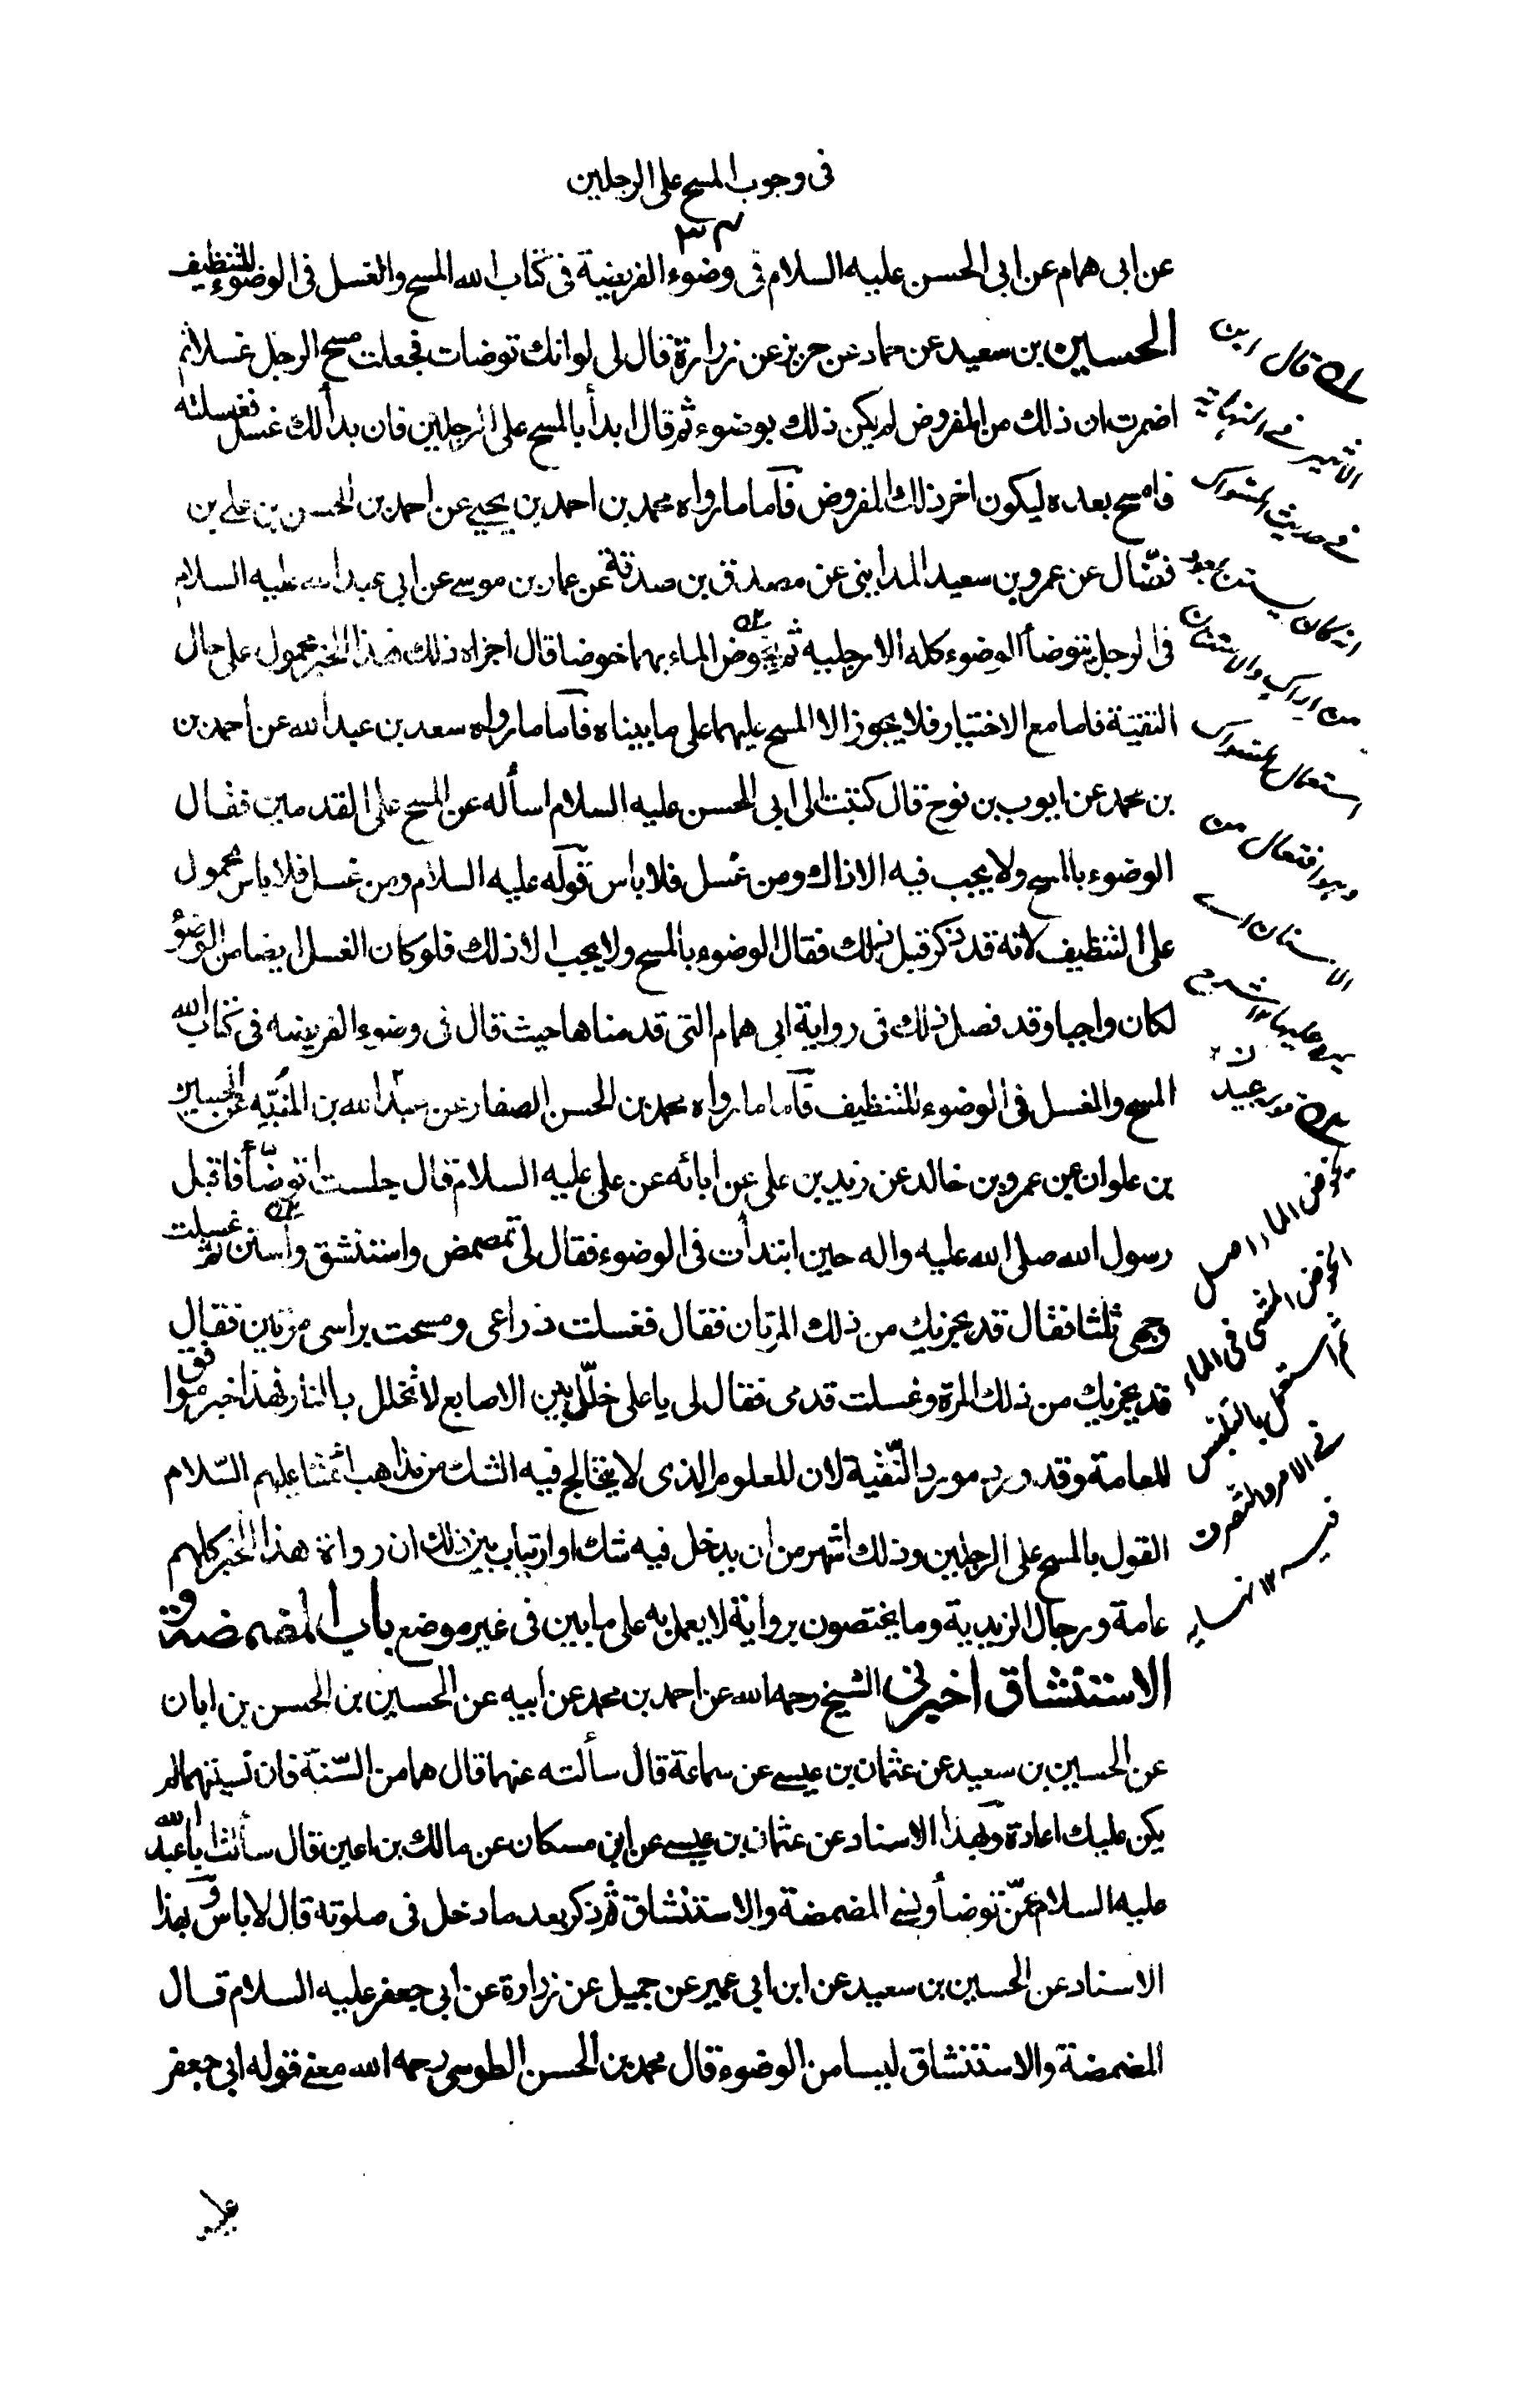 فى وجوب المسح على الرجلين
٣٤
عن ابى همام عن ابى الحسن عليه السلام فى وضوء الفريضة فى كتاب الله المسح والغسل فى الوضوء للتنظيف
الحسين بن سعيد عن حماد عن حريز عن زرارة قال لى لو انك توضات فجعلت مسح الرجل غسلا ثم
اضمرت ان ذلك من المفروض لم يكن ذلك بوضوء ثم قال ابدأ بالمسح على الرجلين فان بدألك غسل فغسلته
فامسح بعده ليكون اخر ذلك المفروض فآما ما رواه محمد بن احمد بن يحيى عن احمد بن الحسن بن على بن
فضّال عن عمرو بن سعيد المداينى عن مصدق بن صدقة عن عمار بن موسى عن ابى عبد الله عليه السلام
فى الرجل يتوضأ الوضوء كله الا رجليه ثم يخوض الماء بهما خوضا قال اجزاه ذلك فهذا الخبر محمول على حال
التقيّة فاما مع الاختيار فلا يجوز الا المسح عليهما على ما بيناه فآما ما رواه سعد بن عبد الله عن احمد بن
بن محمد عن ايوب بن نوح قال كتبت الى ابى الحسن عليه السلام اسأله عن المسح على القدمين فقال
الوضوء بالمسح ولا يجب فيه الا ذاك ومن غسل فلا باس قوله عليه السلام ومن غسل فلا باس محمول
على التنظيف لانه قد ذكر قبل ذلك فقال الوضوء بالمسح ولا يجب الا ذلك فلو كان الغسل ايضا من الوضوء
لكان واجبا وقد فصل ذلك فى رواية ابى همام التى قدمناها حيث قال فى وضوء الفريضه فى كتاب الله
المسح والغسل فى الوضوء للتنظيف فآما ما رواه محمد بن الحسن الصفار عن عبد الله بن المنبّه عن الحسين
بن علوان عن عمرو بن خالد عن زيد بن على عن ابائه عن على عليه السلام قال جلست اتوضّأ فاقبل
رسول الله صلى الله عليه واله حين ابتدأت فى الوضوء فقال لى تمضمض واستنشق واستن ثم غسلت
وجهى ثلثا فقال قد يجزيك من ذلك المرتان فقال فغسلت ذراعى ومسحت براسى مرتين فقال
قد يجزيك من ذلك المرة وغسلت قدمى فقال لى يا على خلّل بين الاصابع لا تخلل بالنار فهذا خبر موافق
للعامة وقد ورد مورد التّقية لان المعلوم الذى لا يتخالج فيه الشك من مذاهب أئمتنا عليهم السّلام
القول بالمسح على الرجلين وذلك اشهر من ان يدخل فيه شك او ارتياب بين ذلك ان رواة هذا الخبر كلهم
عامة ورجال الزيدية وما يختصون برواية لا يعمل به على ما بين فى غير موضع باب المضمضة و
الاستنشاق اخبرنى الشيخ رحمه الله عن احمد بن محمد عن ابيه عن الحسين بن الحسن بن ابان
عن الحسين بن سعيد عن عثمان بن عيسى عن سماعة قال سألته عنهما قال هما من السّنة فان نسيتهما لم
يكن عليك اعادة وبهذا الاسناد عن عثمان بن عيسى عن ابن مسكان عن مالك بن اعين قال سألت ابا عبد الله
عليه السلام عمّن توضأ ونسى المضمضة والاستنشاق ثم ذكر بعد ما دخل فى صلوته قال لا باس وبهذا
الاسناد عن الحسين بن سعيد عن ابن ابى عمير عن جميل عن زرارة عن ابى جعفر عليه السلام قال
المضمضة والاستنشاق ليسا من الوضوء قال محمد بن الحسن الطوسى رحمه الله معنى قوله ابى جعفر
قال ابن
الاثير فى النهاية
فى حديث السواك
انه كان يستن بعود
من اراك والاستنان
استعمال السواك
وهو افتعال من
الاسنان اى
يمره عليها
يخوض الماء اصل
الخوض المشى فى الماء
ثم استعمل بالتلبس
فى الامر والتصرف
فيه ١٢ نهايه